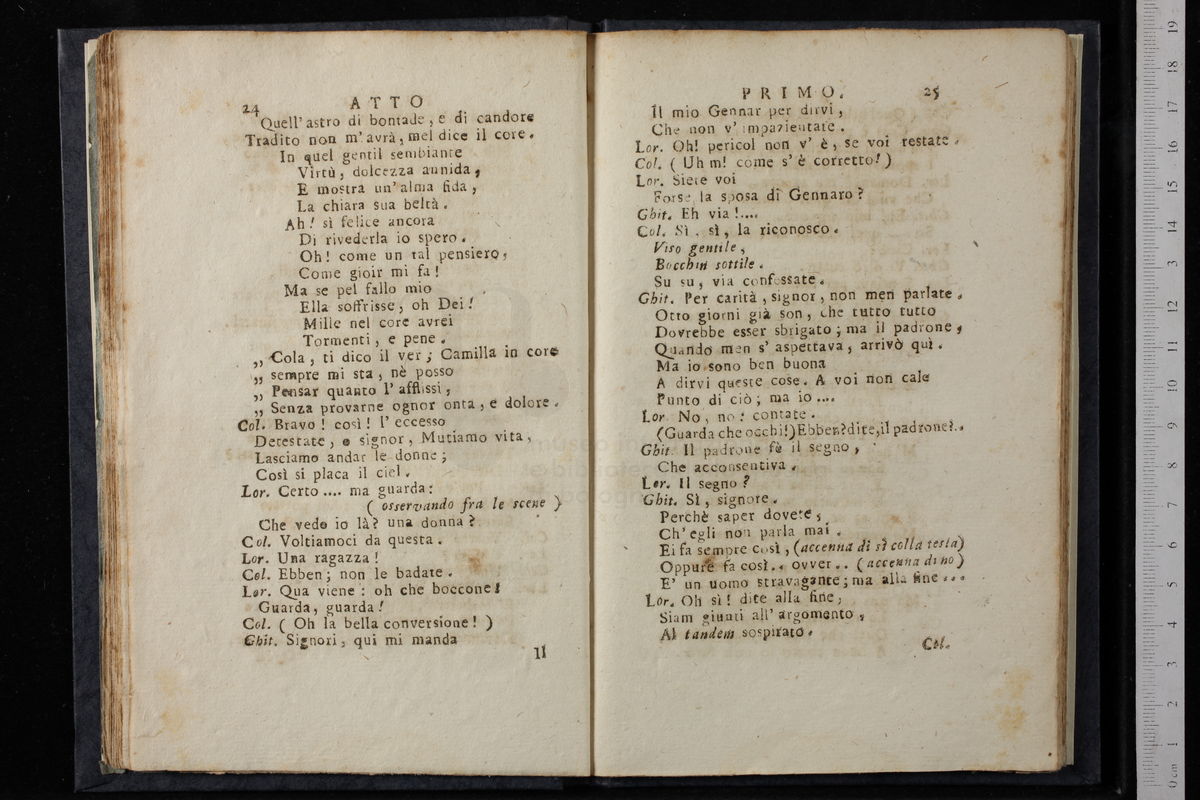 24 ATTO
Quell'astro di bontade, e di candore
Tradito non m'avrà, mel dice il core.
In quel gentil sembiante
Virtù, dolcezza annida,
E mostra un'alma fida,
La chiara sua beltà.
Ah! sì felice ancora
Di rivederla io spero.
Oh! come un tal pensiero,
Come gioir mi fa!
Ma se pel fallo mio
Ella soffrisse, oh Dei!
Mille nel core avrei
Tormenti, e pene.
„ Cola, ti dico il ver; Camilla in core
„ sempre mi sta, nè posso
„ Pensar quanto l'afflissi,
„ Senza provarne ognor onta, e dolore.
Col. Bravo! così! l'eccesso
Detestate, o signor, Mutiamo vita,
Lasciamo andar le donne;
Così si placa il ciel.
Lor. Certo .... ma guarda:
( osservando fra le scene )
Che vedo io là? una donna?
Col. Voltiamoci da questa.
Lor. Una ragazza!
Col. Ebben; non le badate.
Lor. Qua viene: oh che boccone!
Guarda, guarda!
Col. ( Oh la bella conversione! )
Ghit. Signori, qui mi manda
Il
PRIMO. 25
Il mio Gennar per dirvi,
Che non v'impazientate.
Lor. Oh! pericol non v'è, se voi restate.
Col. ( Uhm! come s'è corretto! )
Lor. Siete voi
Forse la sposa di Gennaro?
Ghit. Eh via!....
Col. Sì, sì, la riconosco.
Viso gentile,
Bocchin sottile.
Su su, via confessate.
Ghit. Per carità, signor, non men parlate.
Otto giorni già son, che tutto tutto
Dovrebbe esser sbrigato; ma il padrone,
Quando men s'aspettava, arrivò quì.
Ma io sono ben buona
A dirvi queste cose. A voi non cale
Punto di ciò; ma io ....
Lor. No, no: contate.
(Guarda che occhi!) Ebben? dite, il padrone?..
Ghit. Il padrone fè il segno,
Che acconsentiva.
Lor. Il segno?
Ghit. Sì, signore.
Perchè saper dovete,
Ch'egli non parla mai.
Ei fa sempre così, (accenna di sì colla testa)
Oppure fa così.. ovver.. (accenna di no)
E' un uomo stravagante; ma alla fine ...
Lor. Oh sì! dite alla fine,
Siam giunti all'argomento,
Al tandem sospirato.
Col.
0 cm 1 2 3 4 5 6 7 8 9 10 11 12 13 14 15 16 17 18 19